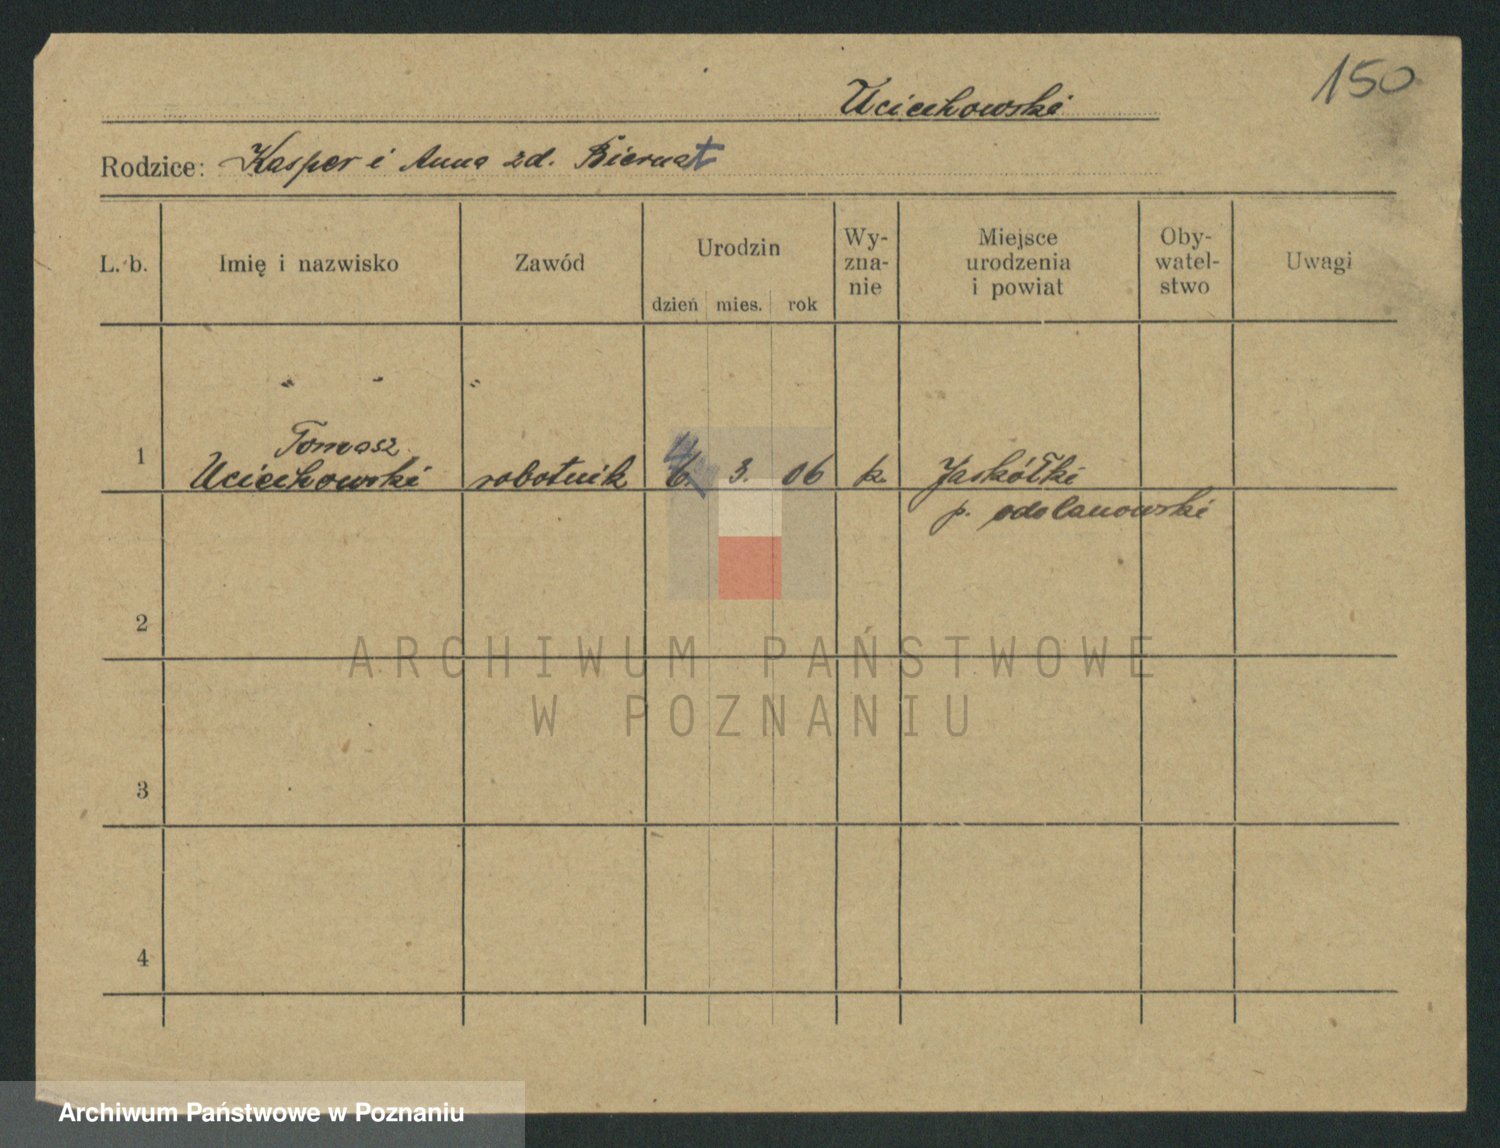 150
Uciechowski
Rodzice: Kasper i Anna zd. Biernat
L. b. Imię i nazwisko Zawód Urodzin Wy-zna-nie Miejsce urodzenia i powiat Oby-watel-stwo Uwagi
dzień mies. rok
" " "
Tomasz
1 Uciechowski robotnik 3. 06 k. Jaskółki
p. odolanowski
2
ARCHIWUM PAŃSTWOWE
W POZNANIU
3
4
Archiwum Państwowe w Poznaniu